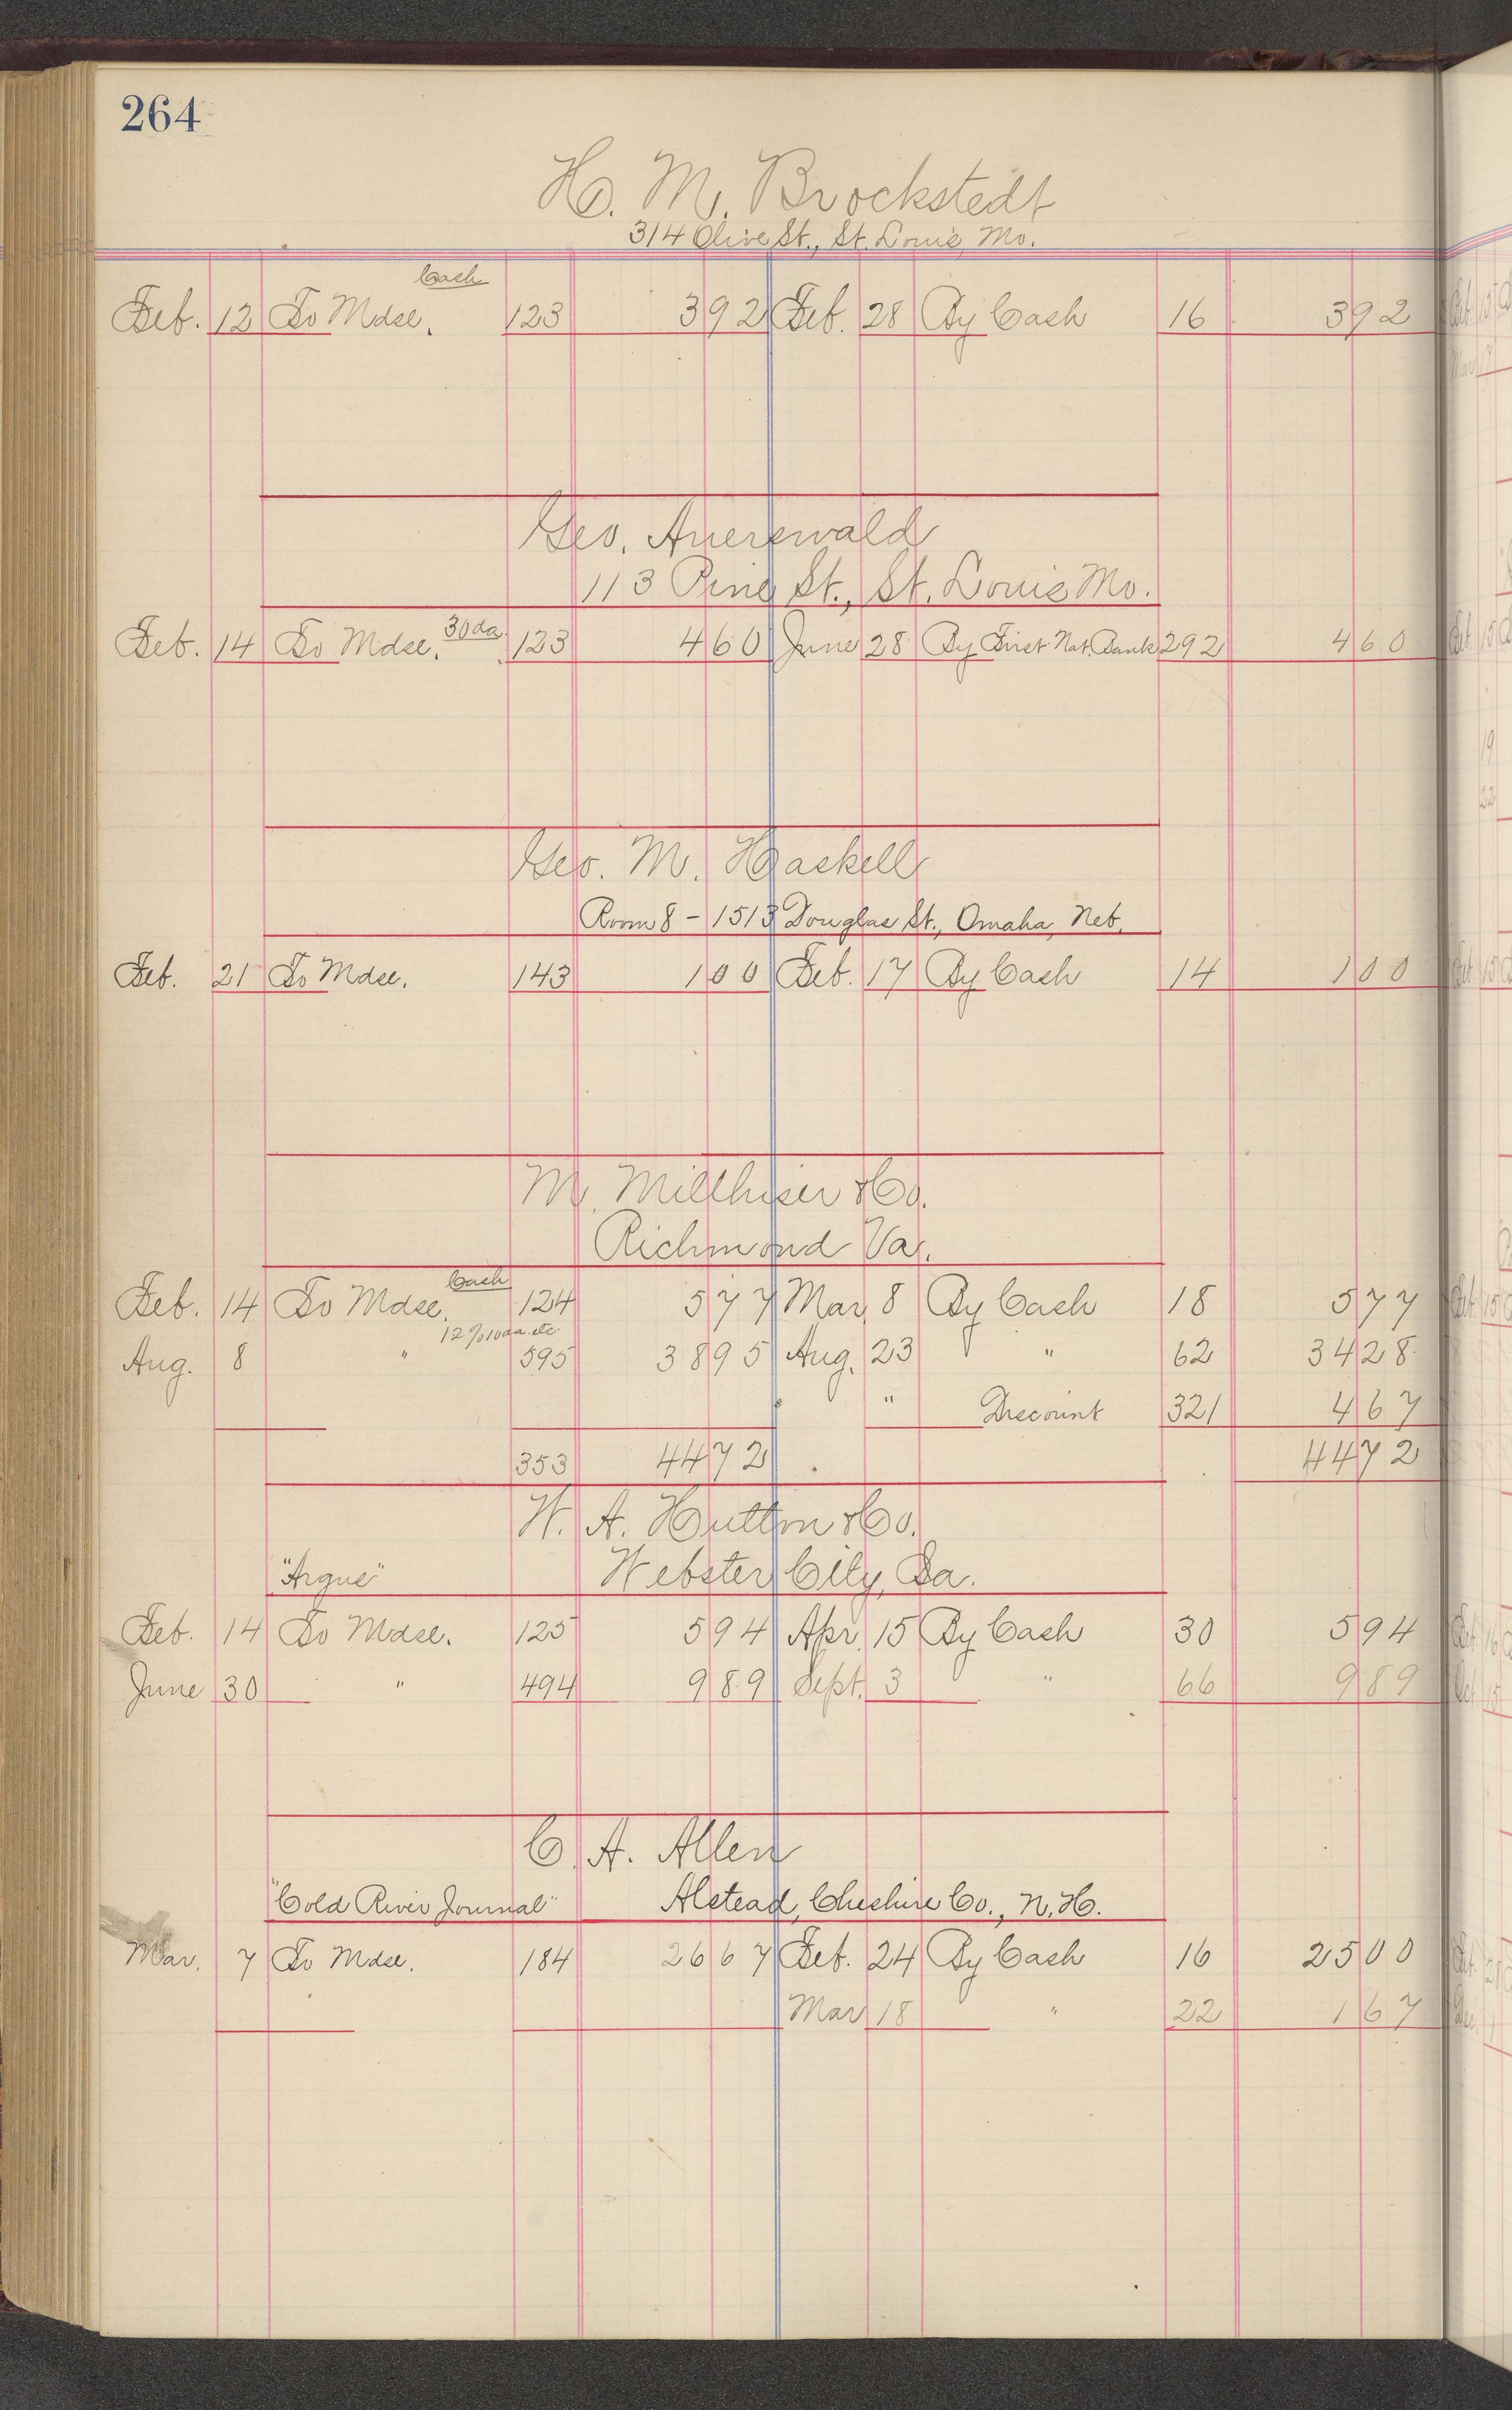 264
H. M. Brockstedt
314 Olive St., St. Louis, Mo.
Cash
Feb. 12 To Mdse. 123 392 Feb. 28 By Cash 16 392
Geo. Auerswald
113 Pine St., St. Louis Mo.
Feb. 14 To Mdse. 30 da. 123 460 June 28 By First Nat. Bank 292 460
Geo. M. Haskell
Room 8 - 1513 Douglas St., Omaha, Neb.
Feb. 21 To Mdse. 143 100 Feb. 17 By Cash 14 100
M. Millhiser & Co.
Richmond Va.
Cash
Feb. 14 To Mdse. 124 577 Mar. 8 By Cash 18 577
12% 10 da. etc.
Aug. 8 " 595 3895 Aug. 23 " 62 3428
" Discount 321 467
353 4472 4472
W. A. Hutton & Co.
"Argus" Webster City, Ia.
Feb. 14 To Mdse. 125 594 Apr. 15 By Cash 30 594
June 30 " 494 989 Sept. 3 " 66 989
C. A. Allen
"Cold River Journal" Alstead, Cheshire Co., N. H.
Mar. 7 To Mdse. 184 2667 Feb. 24 By Cash 16 2500
Mar 18 " 22 167